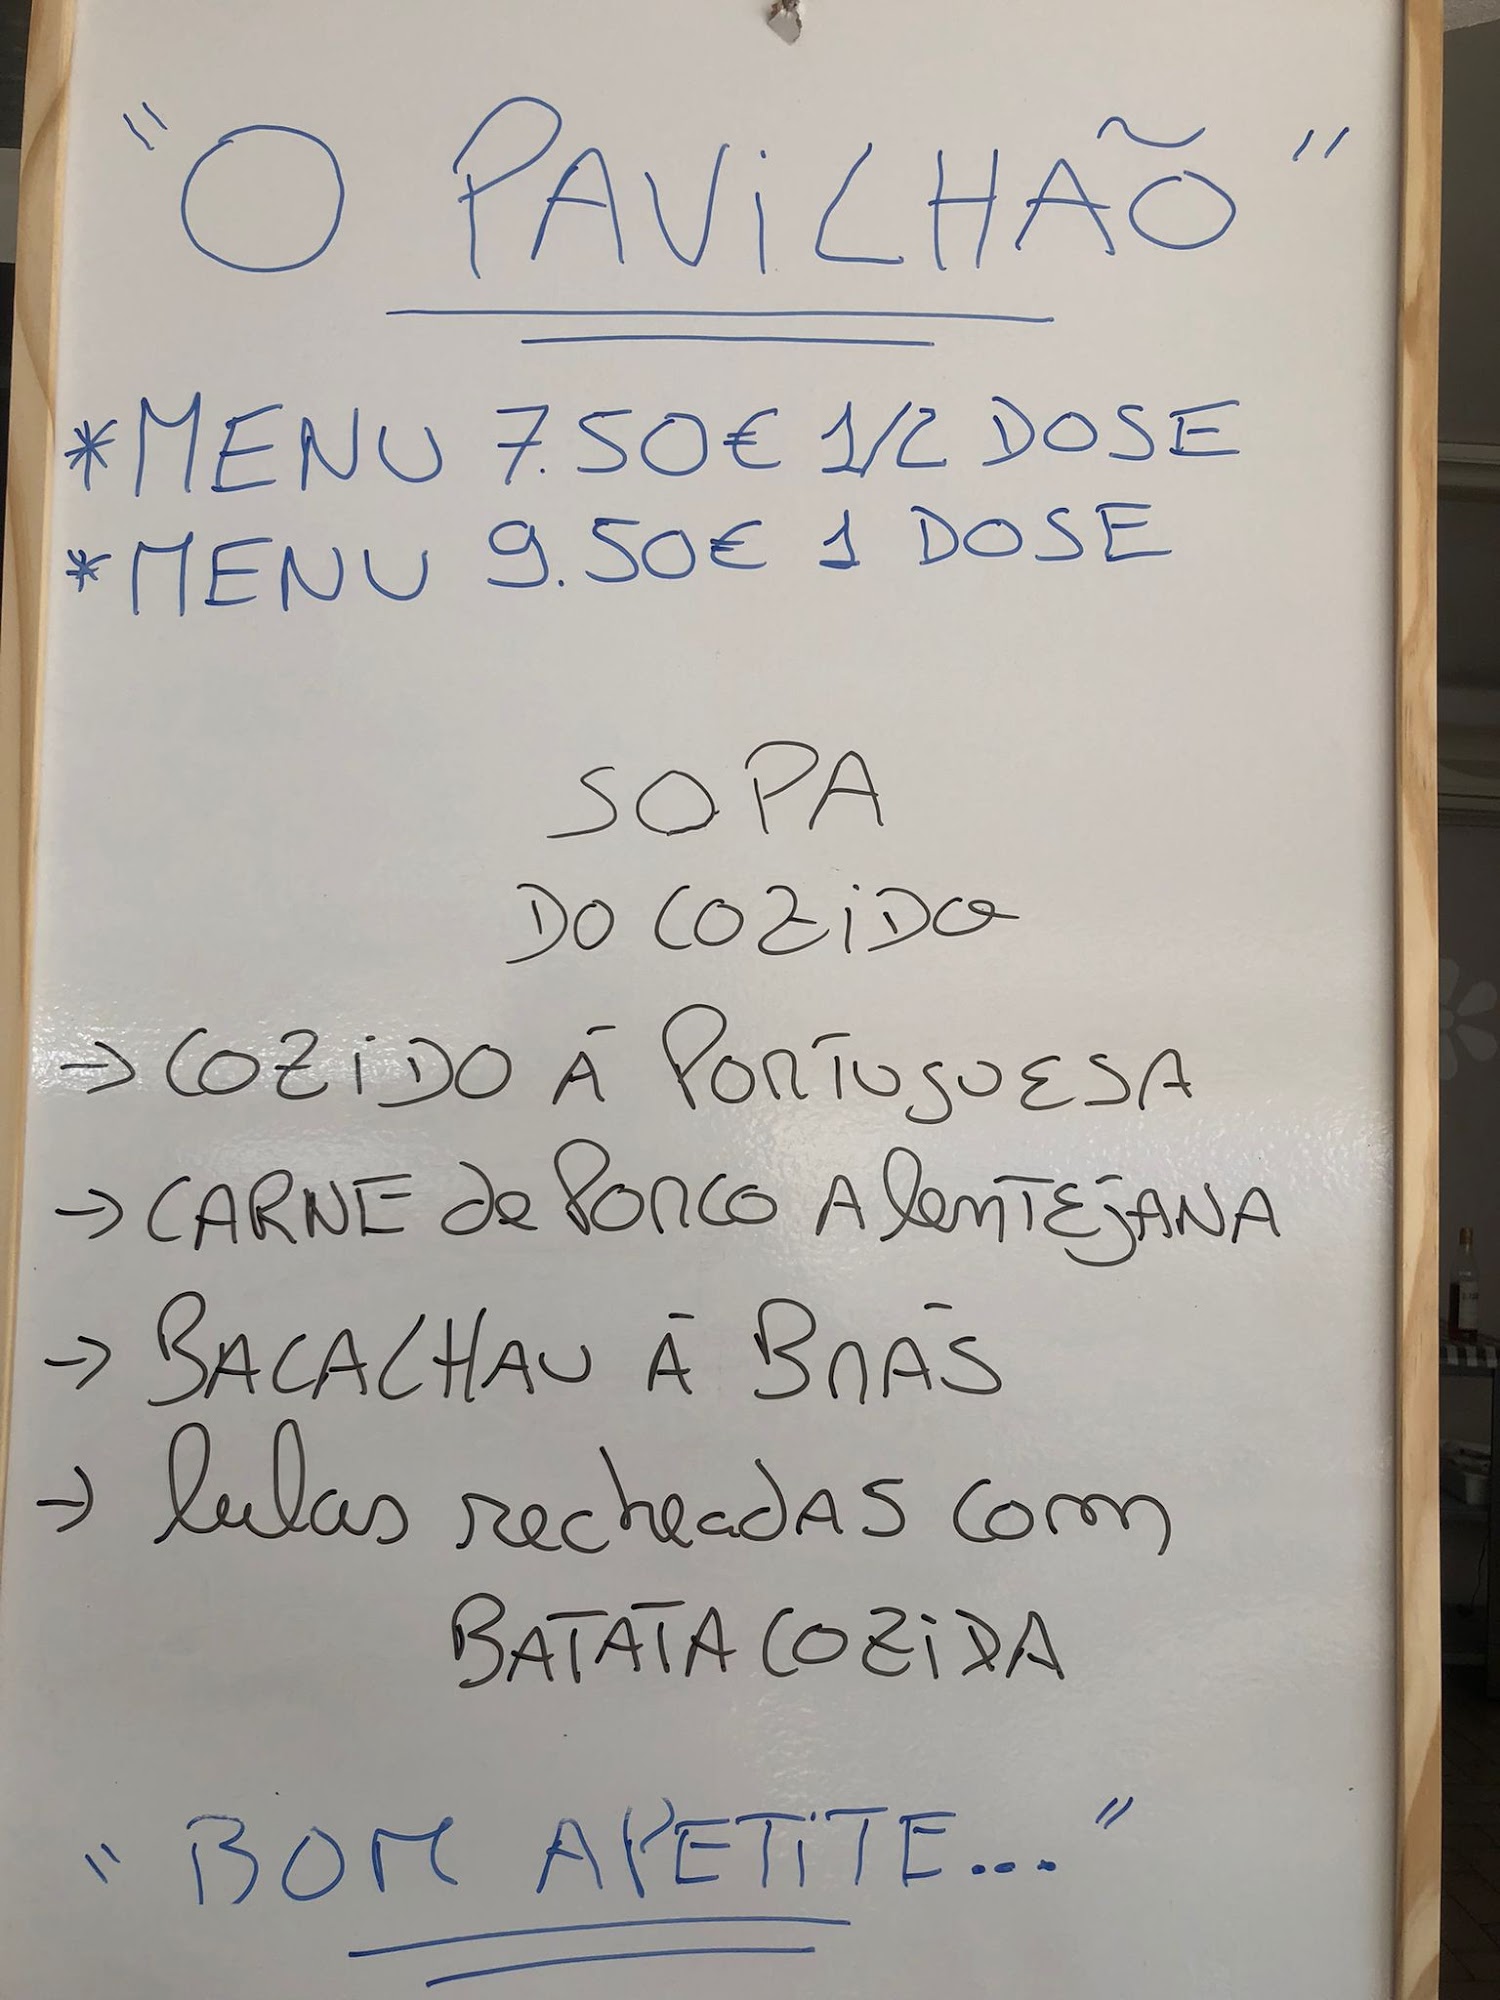 "O PAViLHÃO"
*MENU 7.50€ 1/2 DOSE
*MENU 9.50€ 1 DOSE
SOPA
DO COZiDO
→ COZiDO Á PORTUGUESA
→ CARNE de PORCO AlenTEjANA
→ BACALHAU Á BRÁS
→ lulas recheadAS com
BATATA COZiDA
"BOM APETiTE..."